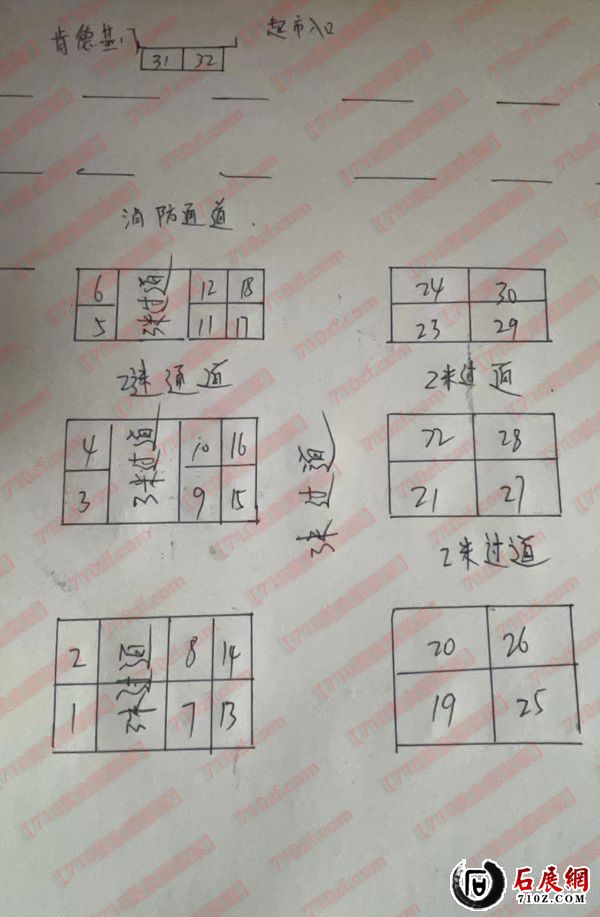 肯德基门
超市入口
31 32
消防通道
6 3米过道 12 18
5 11 17
24 30
23 29
2米通道
2米过道
4 3米过道 10 16
3 9 15
22 28
21 27
3米过道
2米过道
2 3米过道 8 14
1 7 13
20 26
19 25
石展網
710Z.COM
710zf.com